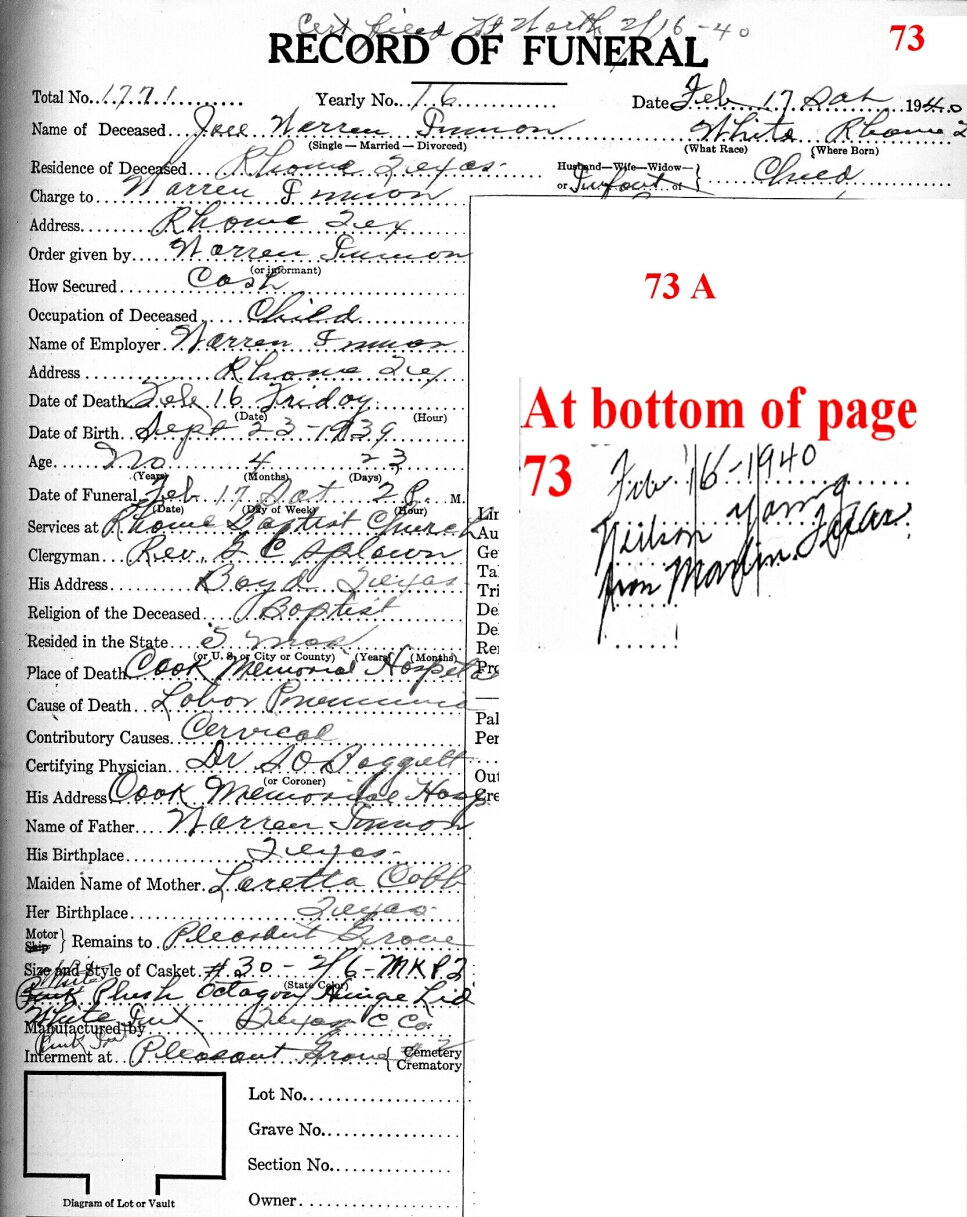 Cert filed Ft Worth 2/16-40
73
RECORD OF FUNERAL
Total No. 1771 Yearly No. 16 Date Feb 17 Sat 1940
Name of Deceased Warren White Rhome
(Single — Married — Divorced) (What Race) (Where Born)
Residence of Deceased Rhome Texas Husband—Wife—Widow— or Infant of } Child
Charge to Warren
Address Rhome Tex
Order given by Warren
(or informant)
How Secured Cash
Occupation of Deceased Child
Name of Employer Warren
Address Rhome Tex
Date of Death Feb 16 Friday
(Date) (Hour)
Date of Birth Sept 23-1939
Age No 4 23
(Years) (Months) (Days)
Date of Funeral Feb 17 Sat 2 P. M.
(Date) (Day of Week) (Hour)
Services at Rhome Baptist Church
Clergyman Rev. G C Splawn
His Address Boyd Texas
Religion of the Deceased Baptist
Resided in the State 5 mos
(or U. S. or City or County) (Years) (Months)
Place of Death Cook Memorial Hospital
Cause of Death Lobar Pneumonia
Contributory Causes Cervical
Certifying Physician Dr
(or Coroner)
His Address Cook Memorial Hosp
Name of Father Warren
His Birthplace Texas
Maiden Name of Mother Loretta Cobb
Her Birthplace Texas
Motor Ship } Remains to Pleasant Grove
Size and Style of Casket #30 - 2/6 - MKP2
(State Color)
White Plush Octagon Hinge Lid
White Int. Texas C Co
Manufactured by
Pink Int
Interment at Pleasant Grove #2 { Cemetery Crematory
Lot No.
Grave No.
Section No.
Owner
Diagram of Lot or Vault
73 A
At bottom of page
73
Feb 16-1940
Neilson Young
from Marlin Texas.
Lin
Au
Ge
Ta
Tri
De
De
Re
Pro
Pal
Per
Out
Cre